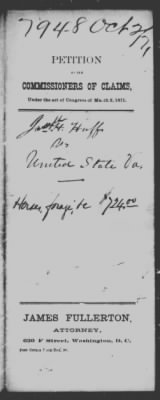 7948 Oct 2/71
PETITION
TO THE
COMMISSIONERS OF CLAIMS,
Under the act of Congress of March 3, 1871.
Jas. H. Huff
vs
United State Va.
Horses, forage, &c $724.00
JAMES FULLERTON,
ATTORNEY,
629 F Street, Washington, D. C.